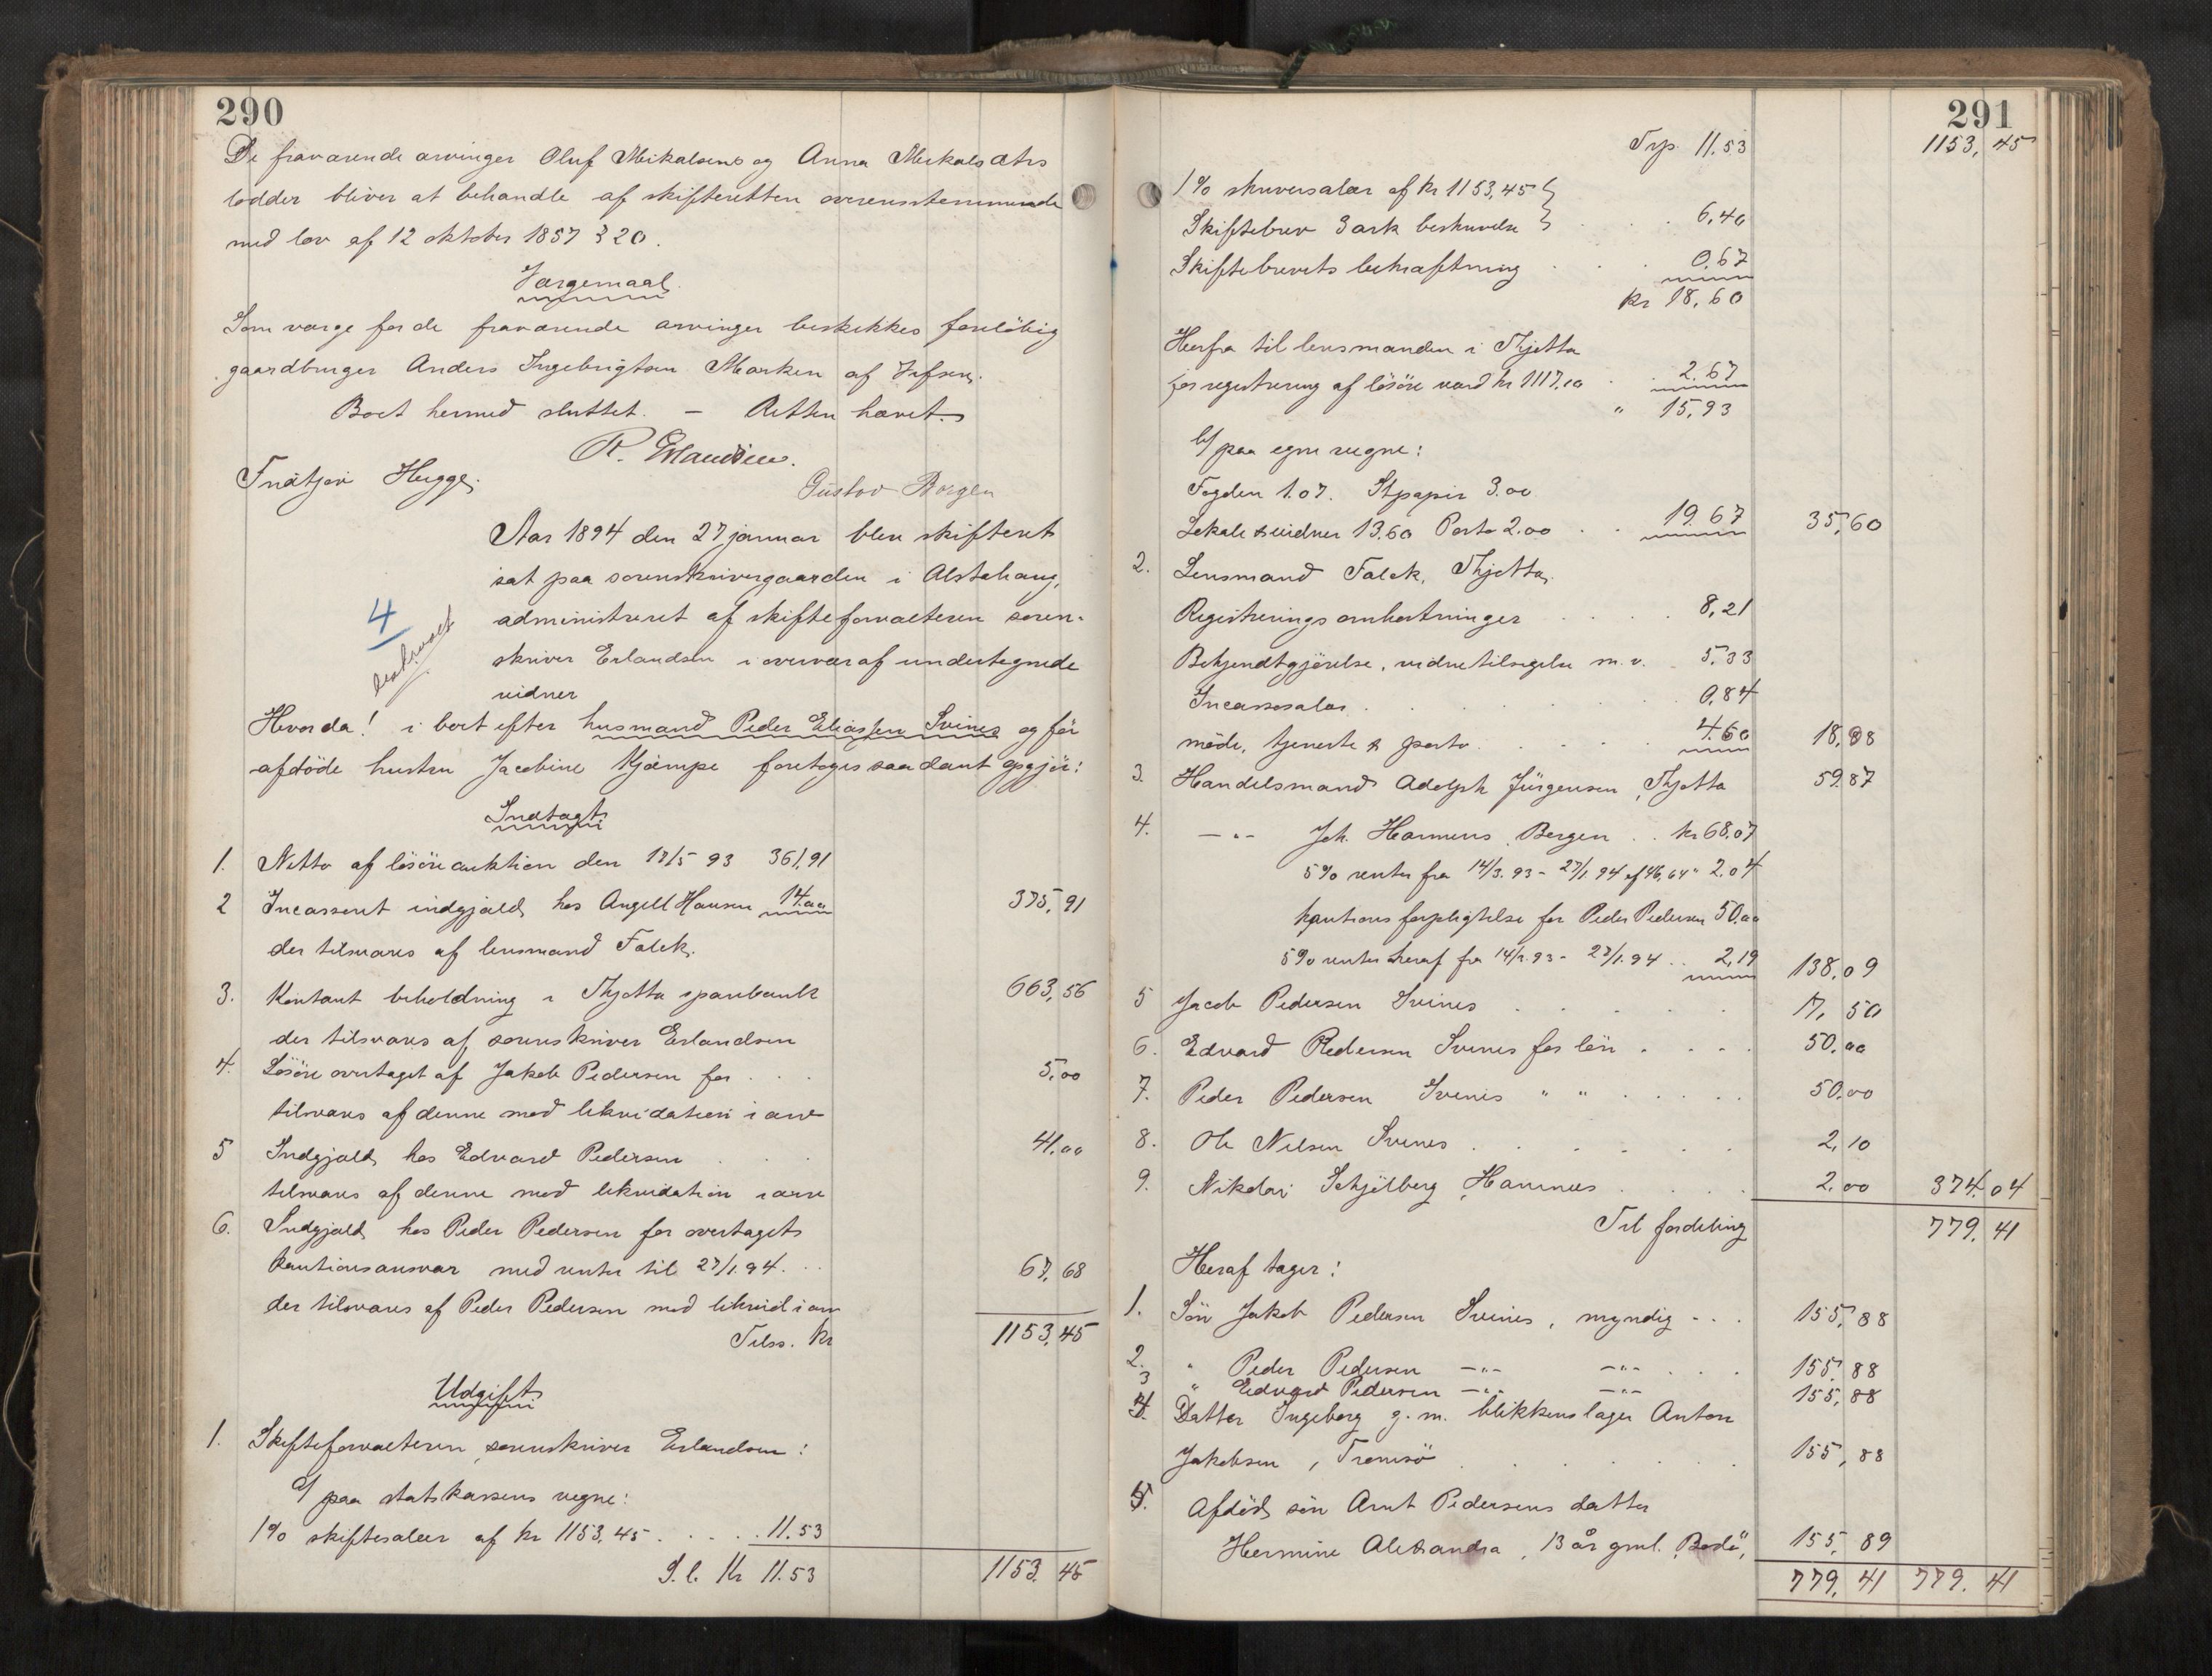 290
De fraværende arvinger Oluf Mikalsens og Anna Mikalsdatrs
lodder bliver at behandle af skifteretten overensstemmende
med lov af 12 oktober 1857 § 20.
Værgemaal.
Som værge for de fraværende arvinger beskikkes foreløbig
gaardbruger Anders Ingebrigtsen Marken af Vefsen.
Boet hermed sluttet. — Retten hævet.
R. Erlandsen.
Hugge.
Gustav Borgen
Aar 1894 den 27 januar blev skifteret
sat paa sorenskrivergaarden i Alstahaug,
4
administreret af skifteforvalteren soren-
skriver Erlandsen i overvær af undertegnede
vidner
Hvorda! i boet efter husmand Peder Eliassen Svines og før
afdöde hustru Jacobine Kjæmpe foretoges saadant opgjør:
Indtægt.
1. Netto af løsøreauktion den 17/5 93 361,91
2 Incasseret indgjæld hos Angell Hansen 14.00 375,91
der tilsvares af lensmand Falck.
3. Kontant beholdning i Thjøtta sparebank 663,56
der tilsvares af sorenskriver Erlandsen
4. Løsøre overtaget af Jakob Pedersen for . . . 5,00
tilsvares af denne med likvidation i arv
5 Indgjæld hos Edvard Pedersen . . . 41,00
tilsvares af denne med likvidation i arv
6. Indgjæld hos Peder Pedersen for overtaget
kautionsansvar med renter til 27/1.94. . . 67,68
der tilsvares af Peder Pedersen med likvid i arv
Tilss. kr 1153,45
Udgift.
1. Skifteforvalteren, sorenskriver Erlandsen:
a/ paa statskassens vegne:
1% skiftesalær af kr 1153,45 . . . . 11.53
S.l. Kr 11.53 1153.45
291
Trp. 11.53 1153,45
1% skriversalær af kr 1153,45 }
Skiftebrev 3 ark beskrivelse } . . . 6,40
Skiftebrevets bekræftning . . . 0.67
kr 18,60
Herfra til lensmanden i Thjøtta
for registrering af løsøre værd kr 1117.10 . . 2.67
" 15,93
b/ paa egne vegne:
Fogden 1.07. Stpapir 3.00
Lokale & vidner 13.60 Porto 2.00 . . 19.67 35,60
2. Lensmand Falck, Thjøtta.
Registreringsomkostninger . . . . 8,21
Bekjendtgjørelse, vidnetilsigelse m.v. . 5,33
Incassosalær . . . . . . . 0,84
møde, tjeneste & porto . . . . . 4.60 18,98
3. Handelsmand Adolph Jürgensen, Thjøtta 59.87
4. —"— Joh. Hammers, Bergen . . kr 68.07
5% renter fra 14/3.93 - 27/1.94 af 46,64 " 2.04
kautions forpligtelse for Peder Pedersen 50.00
5% renter heraf fra 14/3.93 - 27/1.94 . . 2,19 138,09
5 Jacob Pedersen Svines . . . . . 17,50
6. Edvard Pedersen Svines for løn . . . . 50.00
7. Peder Pedersen Svines " " . . . . . 50,00
8. Ole Nilsen Svines . . . . . 2,10
9. Nikolai Schjelberg, Hamnes . . . . 2,00 374.04
Til fordeling 779.41
Heraf tager:
1. Søn Jakob Pedersen Svines, myndig . . . 155,88
2. " Peder Pedersen —"— —"— . . . 155.88
3 " Edvard Pedersen —"— —"— 155,88
4. Datter Ingeborg g.m. blikkenslager Anton
Jakobsen, Tromsö . . . . . . 155,88
5. Afdöd søn Arnt Pedersens datter
Hermine Alexandra, 13 år gml. Bodö, 155,89
779,41 779.41